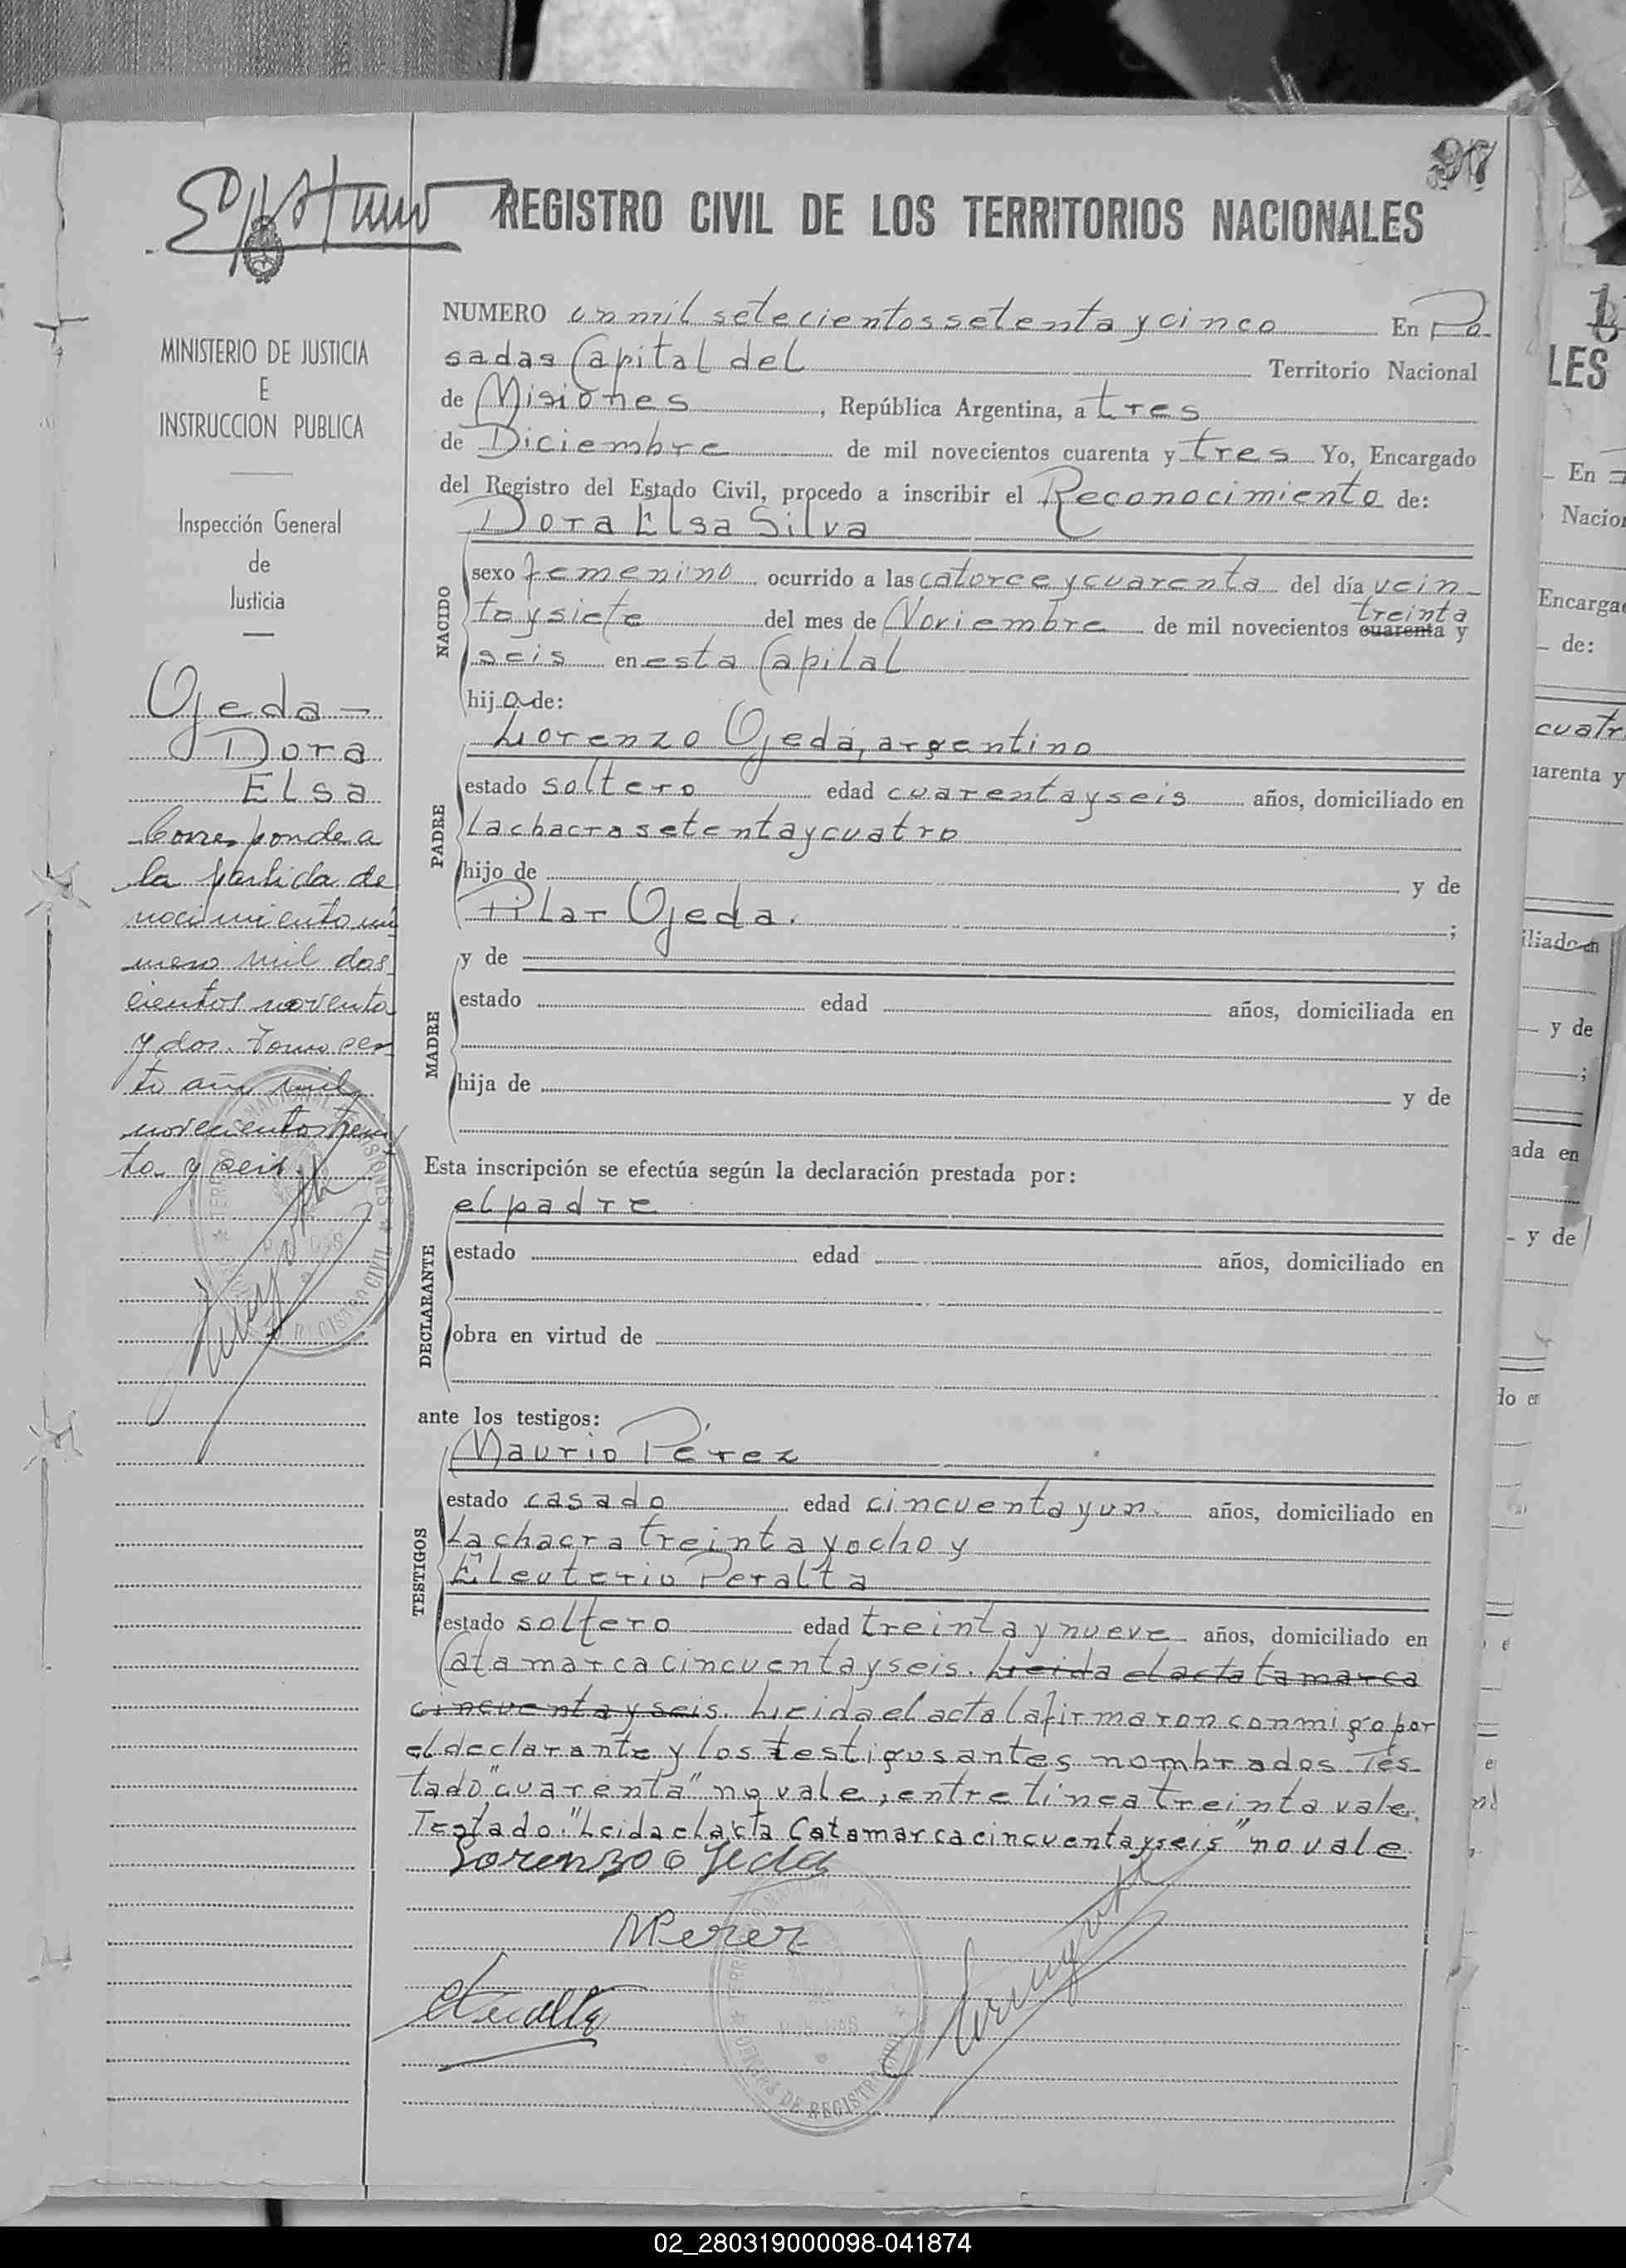 97
REGISTRO CIVIL DE LOS TERRITORIOS NACIONALES
MINISTERIO DE JUSTICIA
E
INSTRUCCION PUBLICA
Inspección General
de
Justicia
Ojeda—
Dora
Elsa
Corresponde a
la partida de
nacimiento nú
mero mil dos
cientos noventa
y dos. Tomo
to año mil
novecientos trein
ta y seis.
NUMERO un mil setecientos setenta y cinco En Po-
sadas Capital del Territorio Nacional
de Misiones, República Argentina, a tres
de Diciembre de mil novecientos cuarenta y tres Yo, Encargado
del Registro del Estado Civil, procedo a inscribir el Reconocimiento de:
Dora Elsa Silva
NACIDO
sexo femenino ocurrido a las catorce y cuarenta del día vein-
treinta
ta y siete del mes de Noviembre de mil novecientos cuarenta y
seis en esta Capital
hija de:
PADRE
Lorenzo Ojeda, argentino
estado soltero edad cuarenta y seis años, domiciliado en
La chacra setenta y cuatro
hijo de y de
Pilar Ojeda. ;
MADRE
y de
estado edad años, domiciliada en
hija de y de
Esta inscripción se efectúa según la declaración prestada por:
el padre
DECLARANTE
estado edad años, domiciliado en
obra en virtud de
ante los testigos:
Maurio Pérez
TESTIGOS
estado casado edad cincuenta y un. años, domiciliado en
La chacra treinta y ocho y
Eleuterio Peralta
estado soltero edad treinta y nueve años, domiciliado en
Catamarca cincuenta y seis. Leida el acta tamarca
cincuenta y seis. Leida el acta la firmaron conmigo por
el declarante y los testigos antes nombrados. Tes-
tado "cuarenta" no vale, entre linea treinta vale.
Testado: "Leida el acta Catamarca cincuenta y seis" no vale
Lorenzo Ojeda
MPerez
TERRITORIO NACIONAL DE MISIONES
POSADAS
OFICINA DE REGISTRO CIVIL
LES
En
Nacion
Encarga
de:
cuatr
uarenta y
iliado en
y de
;
ada en
y de
do en
02_280319000098-041874